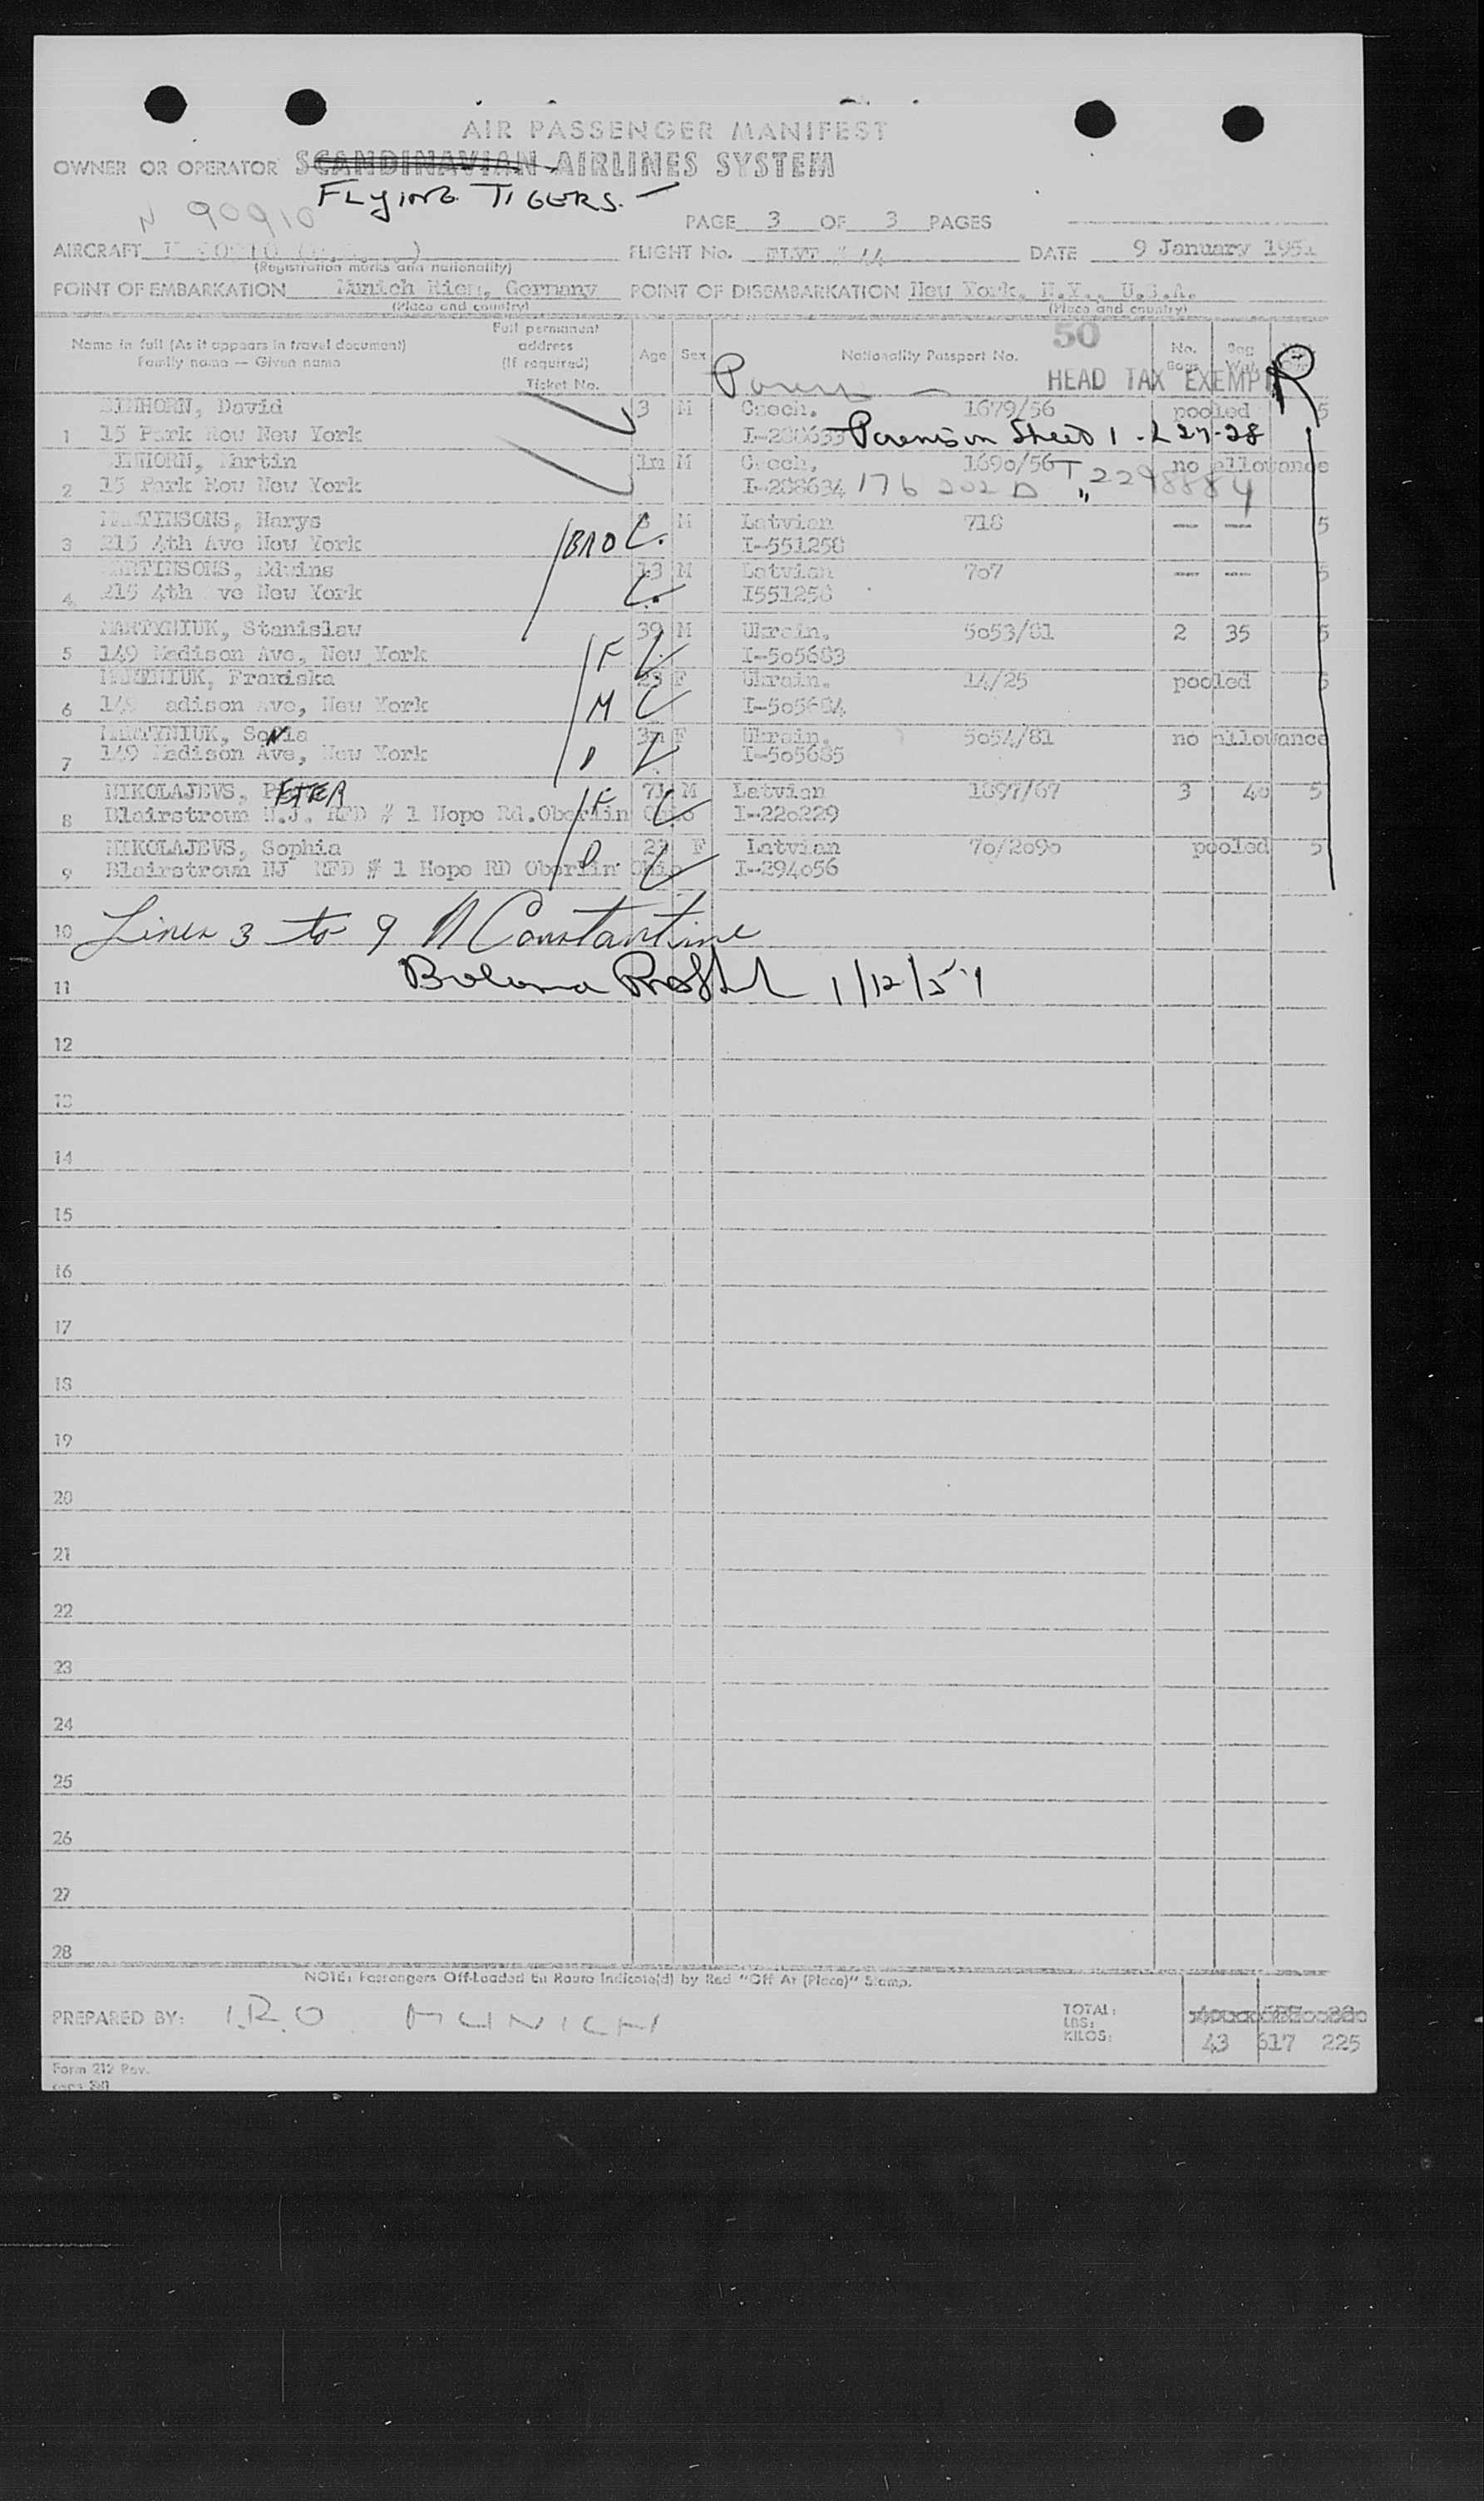 AIR PASSENGER MANIFEST
OWNER OR OPERATOR SCANDINAVIAN AIRLINES SYSTEM
FLYING TIGERS.
N 90910
PAGE 3 OF 3 PAGES
AIRCRAFT FLIGHT No. FLYT # 44 DATE 9 January 1951
(Registration marks and nationality)
POINT OF EMBARKATION Munich Riem, Germany POINT OF DISEMBARKATION New York, N.Y., U.S.A.
(Place and country) (Place and country)
Name in full (As it appears in travel document) Full permanent address (If required) Age Sex Nationality Passport No. 50 No. Bags
Family name — Given name Ticket No. HEAD TAX EXEMPT R
EINHORN, David 3 M Czech. 1679/56 pooled 5
1 15 Park Row New York I-288633 Parents on Sheet 1 - L 27-28
EINHORN, Martin 1m M Czech. 1690/56 no allowance
2 15 Park Row New York I-288634 176 202 D T, 2298884
MARTINSONS, Harys M Latvian 718 --- --- 5
3 215 4th Ave New York BRO C. I-551258
MARTINSONS, Eduins 13 M Latvian 707 --- --- 5
4 215 4th Ave New York I551256
MARTYNIUK, Stanislaw 39 M Ukrain. 5053/81 2 35 5
5 149 Madison Ave, New York F I-505683
MARTYNIUK, Franziska 23 F Ukrain. 14/25 pooled 5
6 149 Madison Ave, New York M I-505684
MARTYNIUK, Sonia 3m F Ukrain. 5054/81 no allowance
7 149 Madison Ave, New York D I-505685
NIKOLAJEVS, PETER 71 M Latvian 1897/67 3 40 5
8 Blairstrown N.J. RFD # 1 Hope Rd.Oberlin Ohio F I-220229
NIKOLAJEVS, Sophia F Latvian 70/2090 pooled 5
9 Blairstrown NJ RFD # 1 Hope RD Oberlin Ohio D I-294056
10 Lines 3 to 9 N Constantine
11 1/12/51
12
13
14
15
16
17
18
19
20
21
22
23
24
25
26
27
28
NOTE: Passengers Off-Loaded En Route Indicate(d) by Red "Off At (Place)" Stamp.
PREPARED BY: I.R.O. MUNICH
TOTAL:
LBS:
KILOS: 43 617 225
Form 212 Rev.